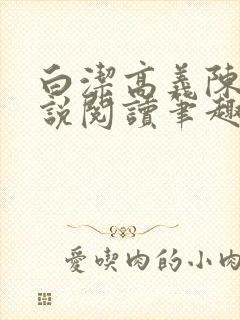 白潔高義陳
說閱讀筆趣
愛喫肉的小肉